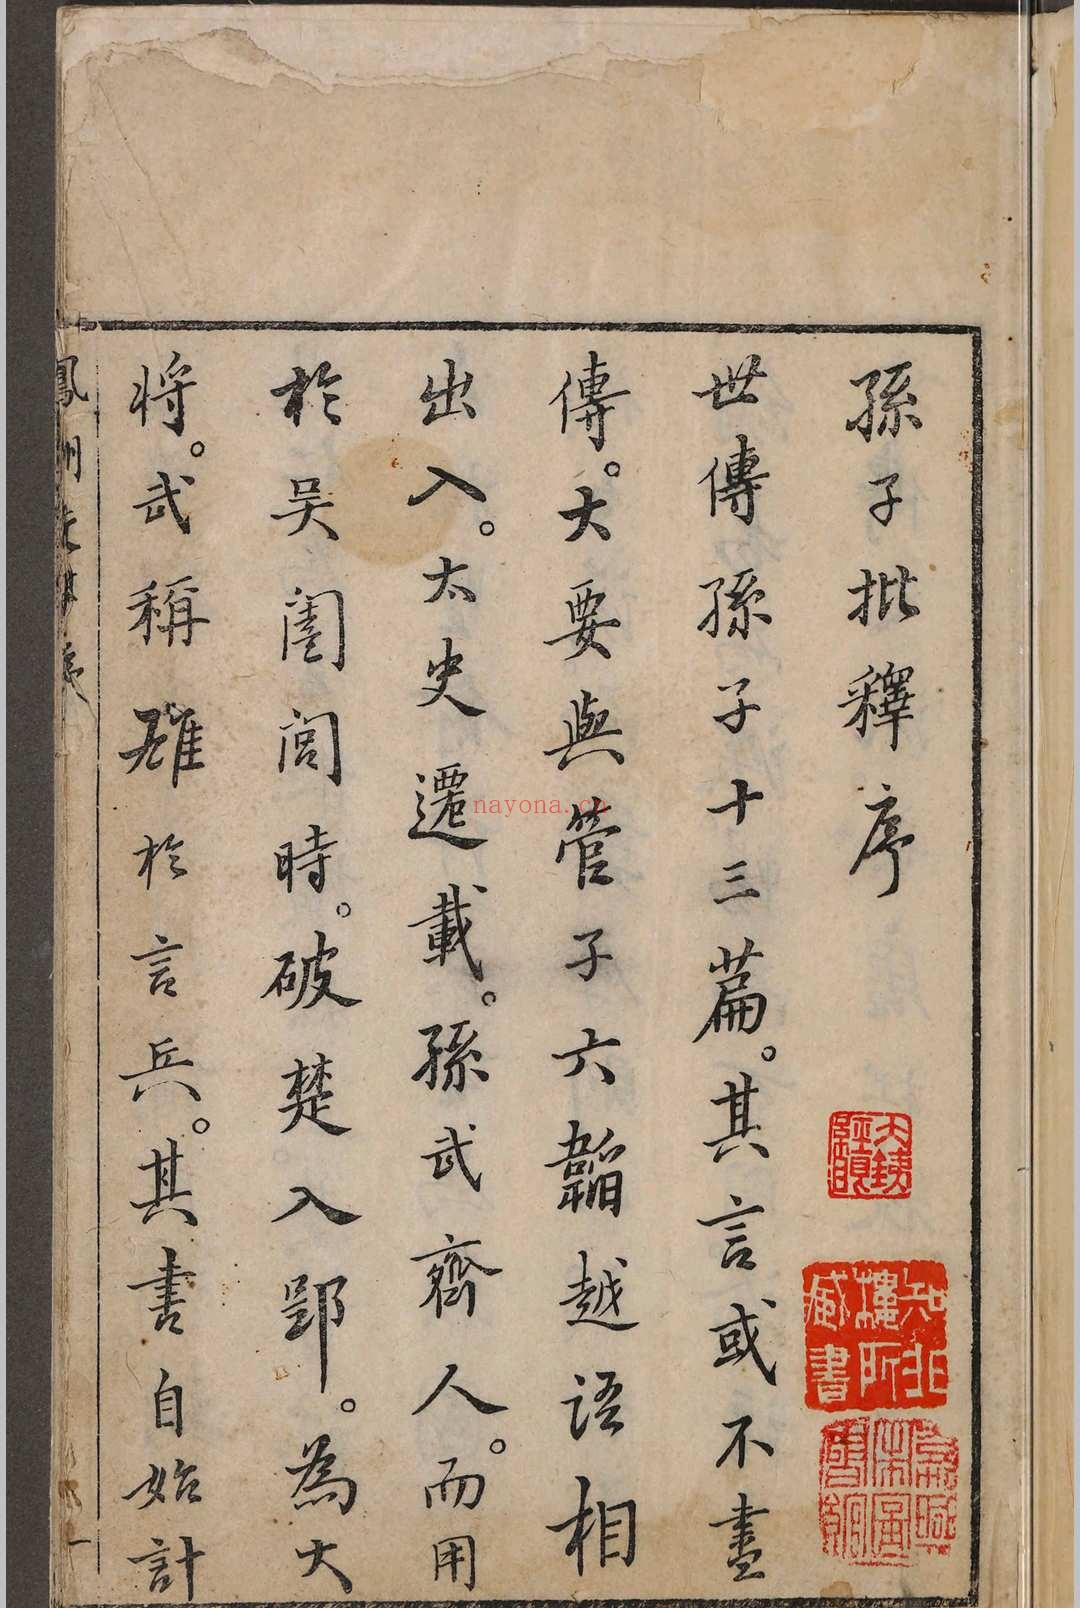 孫子批釋序
世傳孫子十三篇。其言或不盡
傳。大要與管子六韜越語相
出入。太史遷載。孫武齊人。而用
於吴闔閭時。破楚入郢。為大
將。武稱雄於言兵。其書自始計
知非樓所藏書
nayona.cn